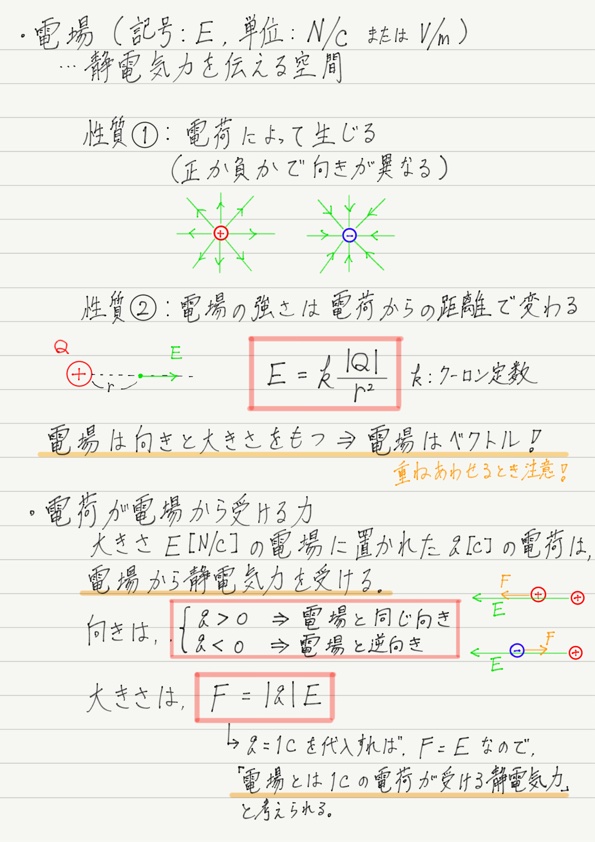 ・電場（記号：E，単位：N/C または V/m）
…静電気力を伝える空間
性質①：電荷によって生じる
（正か負かで向きが異なる）
+ -
性質②：電場の強さは電荷からの距離で変わる
Q
+ r E
E = k |Q| / r² k：クーロン定数
電場は向きと大きさをもつ ⇒ 電場はベクトル！
重ねあわせるとき注意！
・電荷が電場から受ける力
大きさ E[N/C] の電場に置かれた q[C] の電荷は，
電場から静電気力を受ける。
F + + E
向きは， { q > 0 ⇒ 電場と同じ向き
q < 0 ⇒ 電場と逆向き
- F + E
大きさは， F = |q|E
↳ q=1C を代入すれば，F=E なので，
「電場とは1Cの電荷が受ける静電気力」
と考えられる。